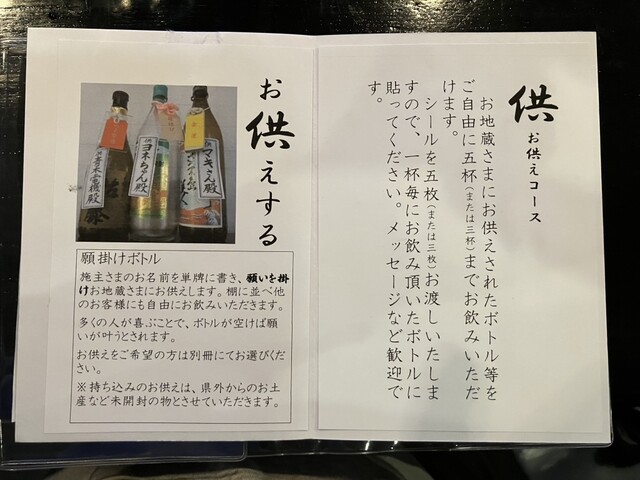 供 お供えコース
お地蔵さまにお供えされたボトル等を
ご自由に五杯(または三杯)までお飲みいただ
けます。
シールを五枚(または三枚)お渡しいたしま
すので、一杯毎にお飲み頂いたボトルに
貼ってください。メッセージなど歓迎で
す。
お供えする
ヨネちゃん殿
マキちゃん殿
願掛けボトル
施主さまのお名前を単牌に書き、願いを掛
けお地蔵さまにお供えします。棚に並べ他
のお客様にも自由にお飲みいただきます。
多くの人が喜ぶことで、ボトルが空けば願
いが叶うとされます。
お供えをご希望の方は別冊にてお選びくだ
さい。
※持ち込みのお供えは、県外からのお土
産など未開封の物とさせていただきます。